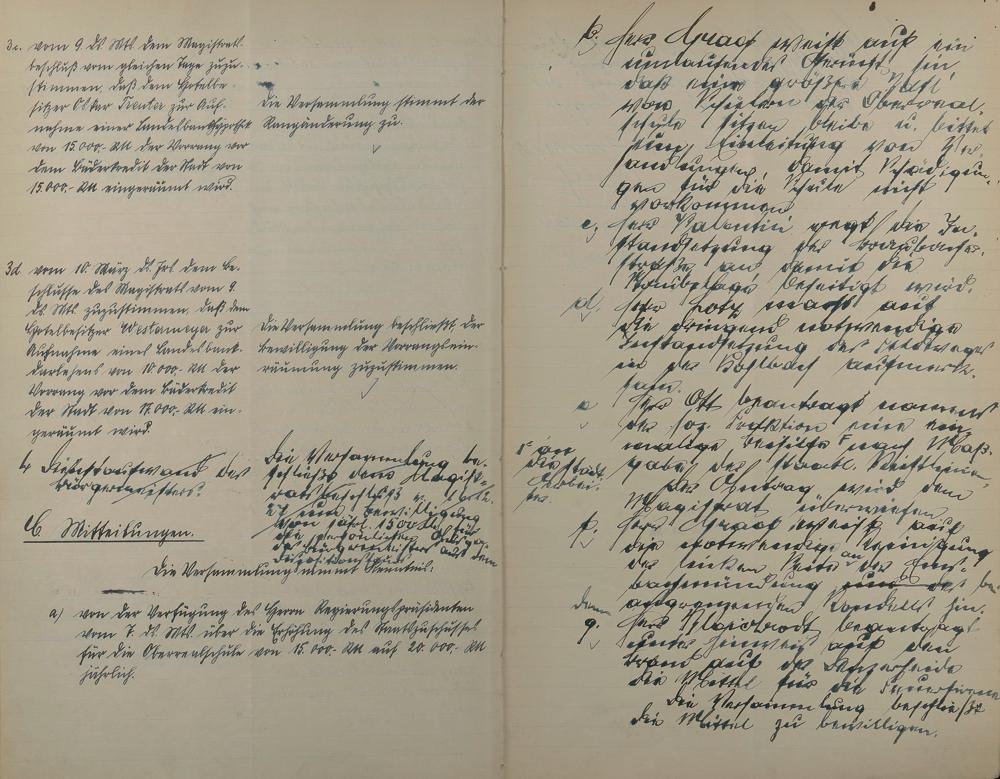 3c. vom 9. ds Mts. dem Magistrats-
beschluß vom gleichen Tage zuzu-
stimmen, daß dem Hotelbe-
sitzer Oskar Treuter zur Auf-
nahme einer Landesbankhypothek
von 15000,- RM der Vorrang vor
dem Bäderkredit der Stadt von
15.000,- RM eingeräumt wird.
Die Versammlung stimmt der
Rangänderung zu.
3d vom 10. März ds. Jrs. dem Be-
schlusse des Magistrats vom 9.
ds Mts. zuzustimmen, daß dem
Hotelbesitzer zur
Aufnahme eines Landesbank-
darlehens von 10000,- RM der
Vorrang vor dem Bäderkredit
der Stadt von 17.000,- RM ein-
geräumt wird.
Die Versammlung beschließt, der
Bewilligung der Vorrangsein-
räumung zuzustimmen.
4. Dienstaufwand des
Bürgermeisters.
Die Versammlung be-
schließt dem Magist-
ratsbeschluß v.
zur Bewilligung
von jährl. 1500 RM für
die persönlichen
des Bürgermeisters aus dem
Dispositionsfond
C. Mitteilungen.
Die Versammlung nimmt Kenntnis:
a) von der Verfügung des Herrn Regierungspräsidenten
vom 7. ds Mts. über die Erhöhung des Staatszuschusses
für die Oberrealschule von 15.000,- RM auf 20.000,- RM
jährlich.
b; Herr Graef weist auf ein
umlaufendes Gerücht hin
daß eine größere Zahl
von Schülern der Oberreal-
schule sitzen bleibe u. bittet
um Einleitung von Ver-
handlungen, damit Schädigun-
gen für die Schule nicht
vorkommen
c; Herr Valentin regt die In-
standsetzung der Braubacher-
straße an damit die
Staubplage beseitigt wird.
d; Herr Lotz macht auf
die dringend notwendige
Instandsetzung des Feldweges
in der aufmerk-
sam.
e Herr Ott beantragt namens
der soz. Fraktion eine ein-
malige Beihilfe nach Maß-
gabe der staatl.
an
die Stadt
Arbei-
ter
Der Antrag wird dem
Magistrat überwiesen
f; Herr Graef weist auf
die notwendige Reinigung
der linken Seite der Ems-
bachmündung an
angrenzenden hin.
g. Herr beantragt
unter Hinweis auf den
Brand auf der
die Mittel für die Feuersirene
Die Versammlung beschließt
die Mittel zu bewilligen.